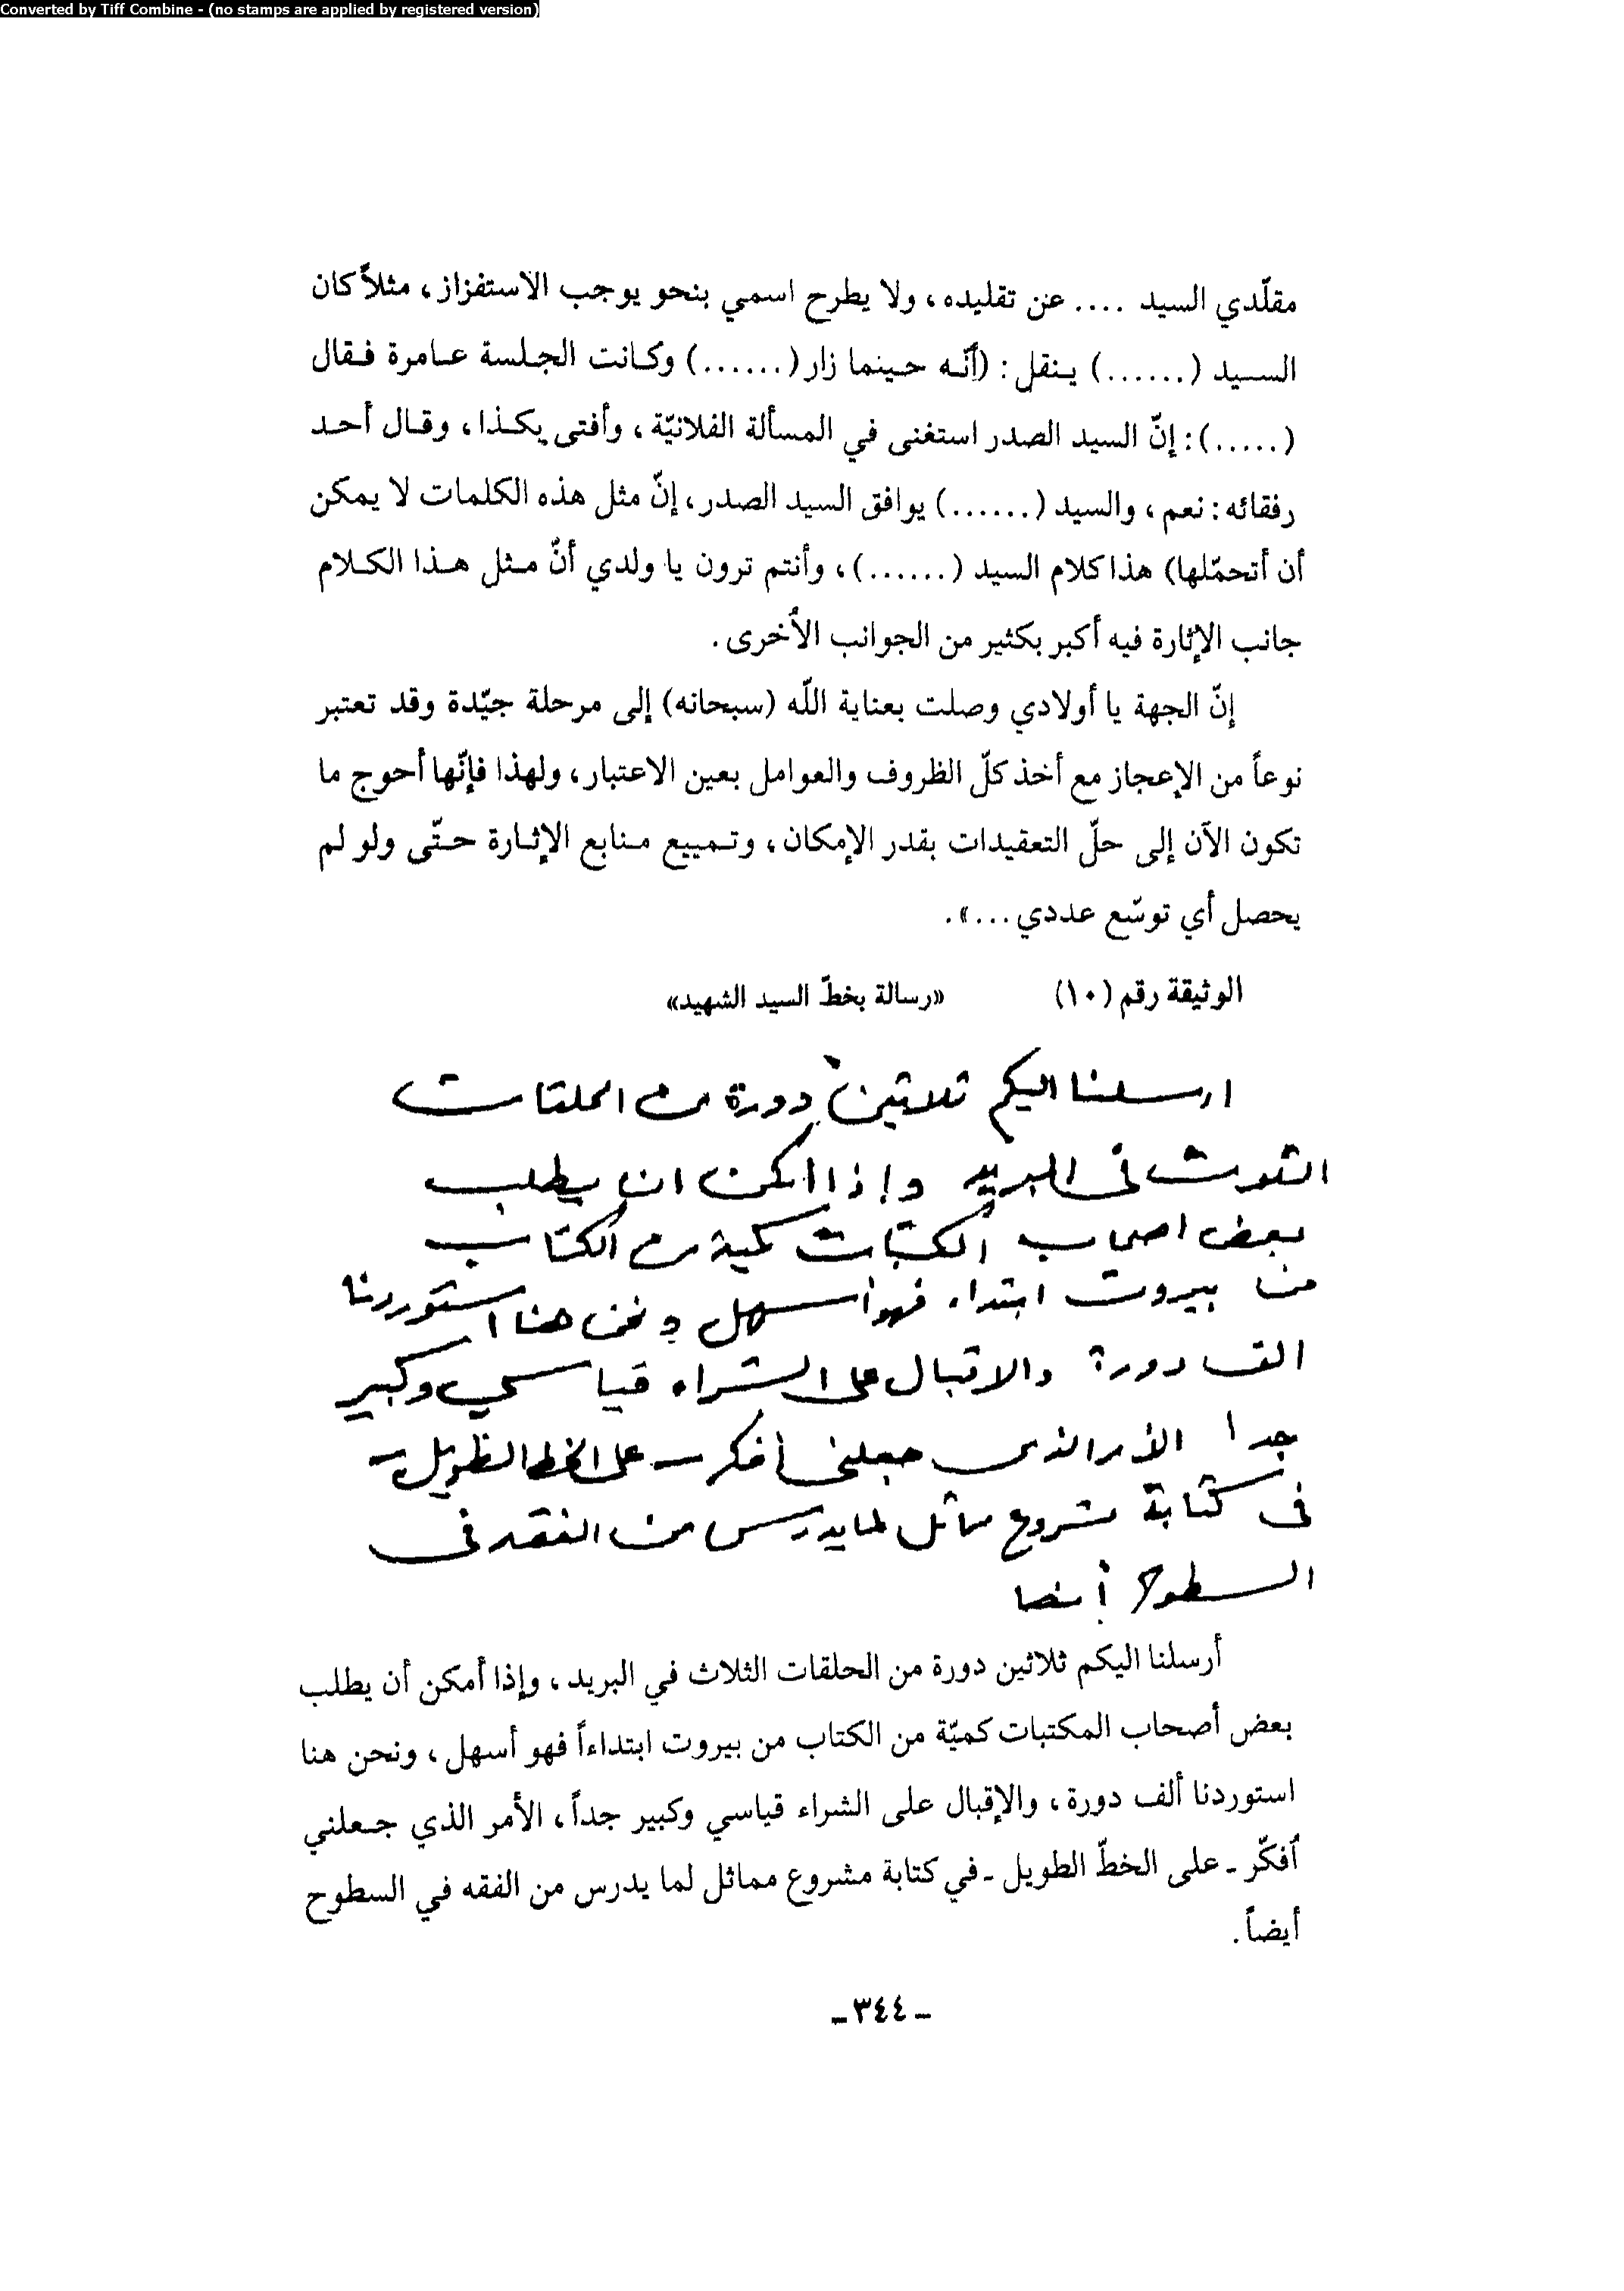 Converted by Tiff Combine - (no stamps are applied by registered version)
مقلّدي السيد .... عن تقليده، ولا يطرح اسمي بنحو يوجب الاستفزاز، مثلاً كان
السيد (......) ينقل: (أنّه حينما زار (......) وكانت الجلسة عامرة فقال
(.....): إنّ السيد الصدر استغنى في المسألة الفلانيّة، وأفتى بكذا، وقال أحد
رفقائه: نعم، والسيد (......) يوافق السيد الصدر، إنّ مثل هذه الكلمات لا يمكن
أن أتحمّلها) هذا كلام السيد (......)، وأنتم ترون يا ولدي أنّ مثل هذا الكلام
جانب الإثارة فيه أكبر بكثير من الجوانب الأخرى.
إنّ الجهة يا أولادي وصلت بعناية اللّه (سبحانه) إلى مرحلة جيّدة وقد تعتبر
نوعاً من الإعجاز مع أخذ كلّ الظروف والعوامل بعين الاعتبار، ولهذا فإنّها أحوج ما
تكون الآن إلى حلّ التعقيدات بقدر الإمكان، وتمييع منابع الإثارة حتّى ولو لم
يحصل أي توسّع عددي ...».
الوثيقة رقم (١٠) «رسالة بخطّ السيد الشهيد»
ارسلنا اليكم ثلاثين دورة من الحلقات
الثلاث في البريد واذا امكن ان يطلب
بعض اصحاب المكتبات كمية من الكتاب
من بيروت ابتداء فهو اسهل ونحن هنا استوردنا
الف دورة والاقبال على الشراء قياسي وكبير
جدا الأمر الذي جعلني أفكر - على الخط الطويل -
في كتابة مشروع مماثل لما يدرس من الفقه في
السطوح أيضا
أرسلنا اليكم ثلاثين دورة من الحلقات الثلاث في البريد، وإذا أمكن أن يطلب
بعض أصحاب المكتبات كميّة من الكتاب من بيروت ابتداءاً فهو أسهل، ونحن هنا
استوردنا ألف دورة، والإقبال على الشراء قياسي وكبير جداً، الأمر الذي جعلني
أفكّر ـ على الخطّ الطويل ـ في كتابة مشروع مماثل لما يدرس من الفقه في السطوح
أيضاً.
ـ ٣٤٤ ـ